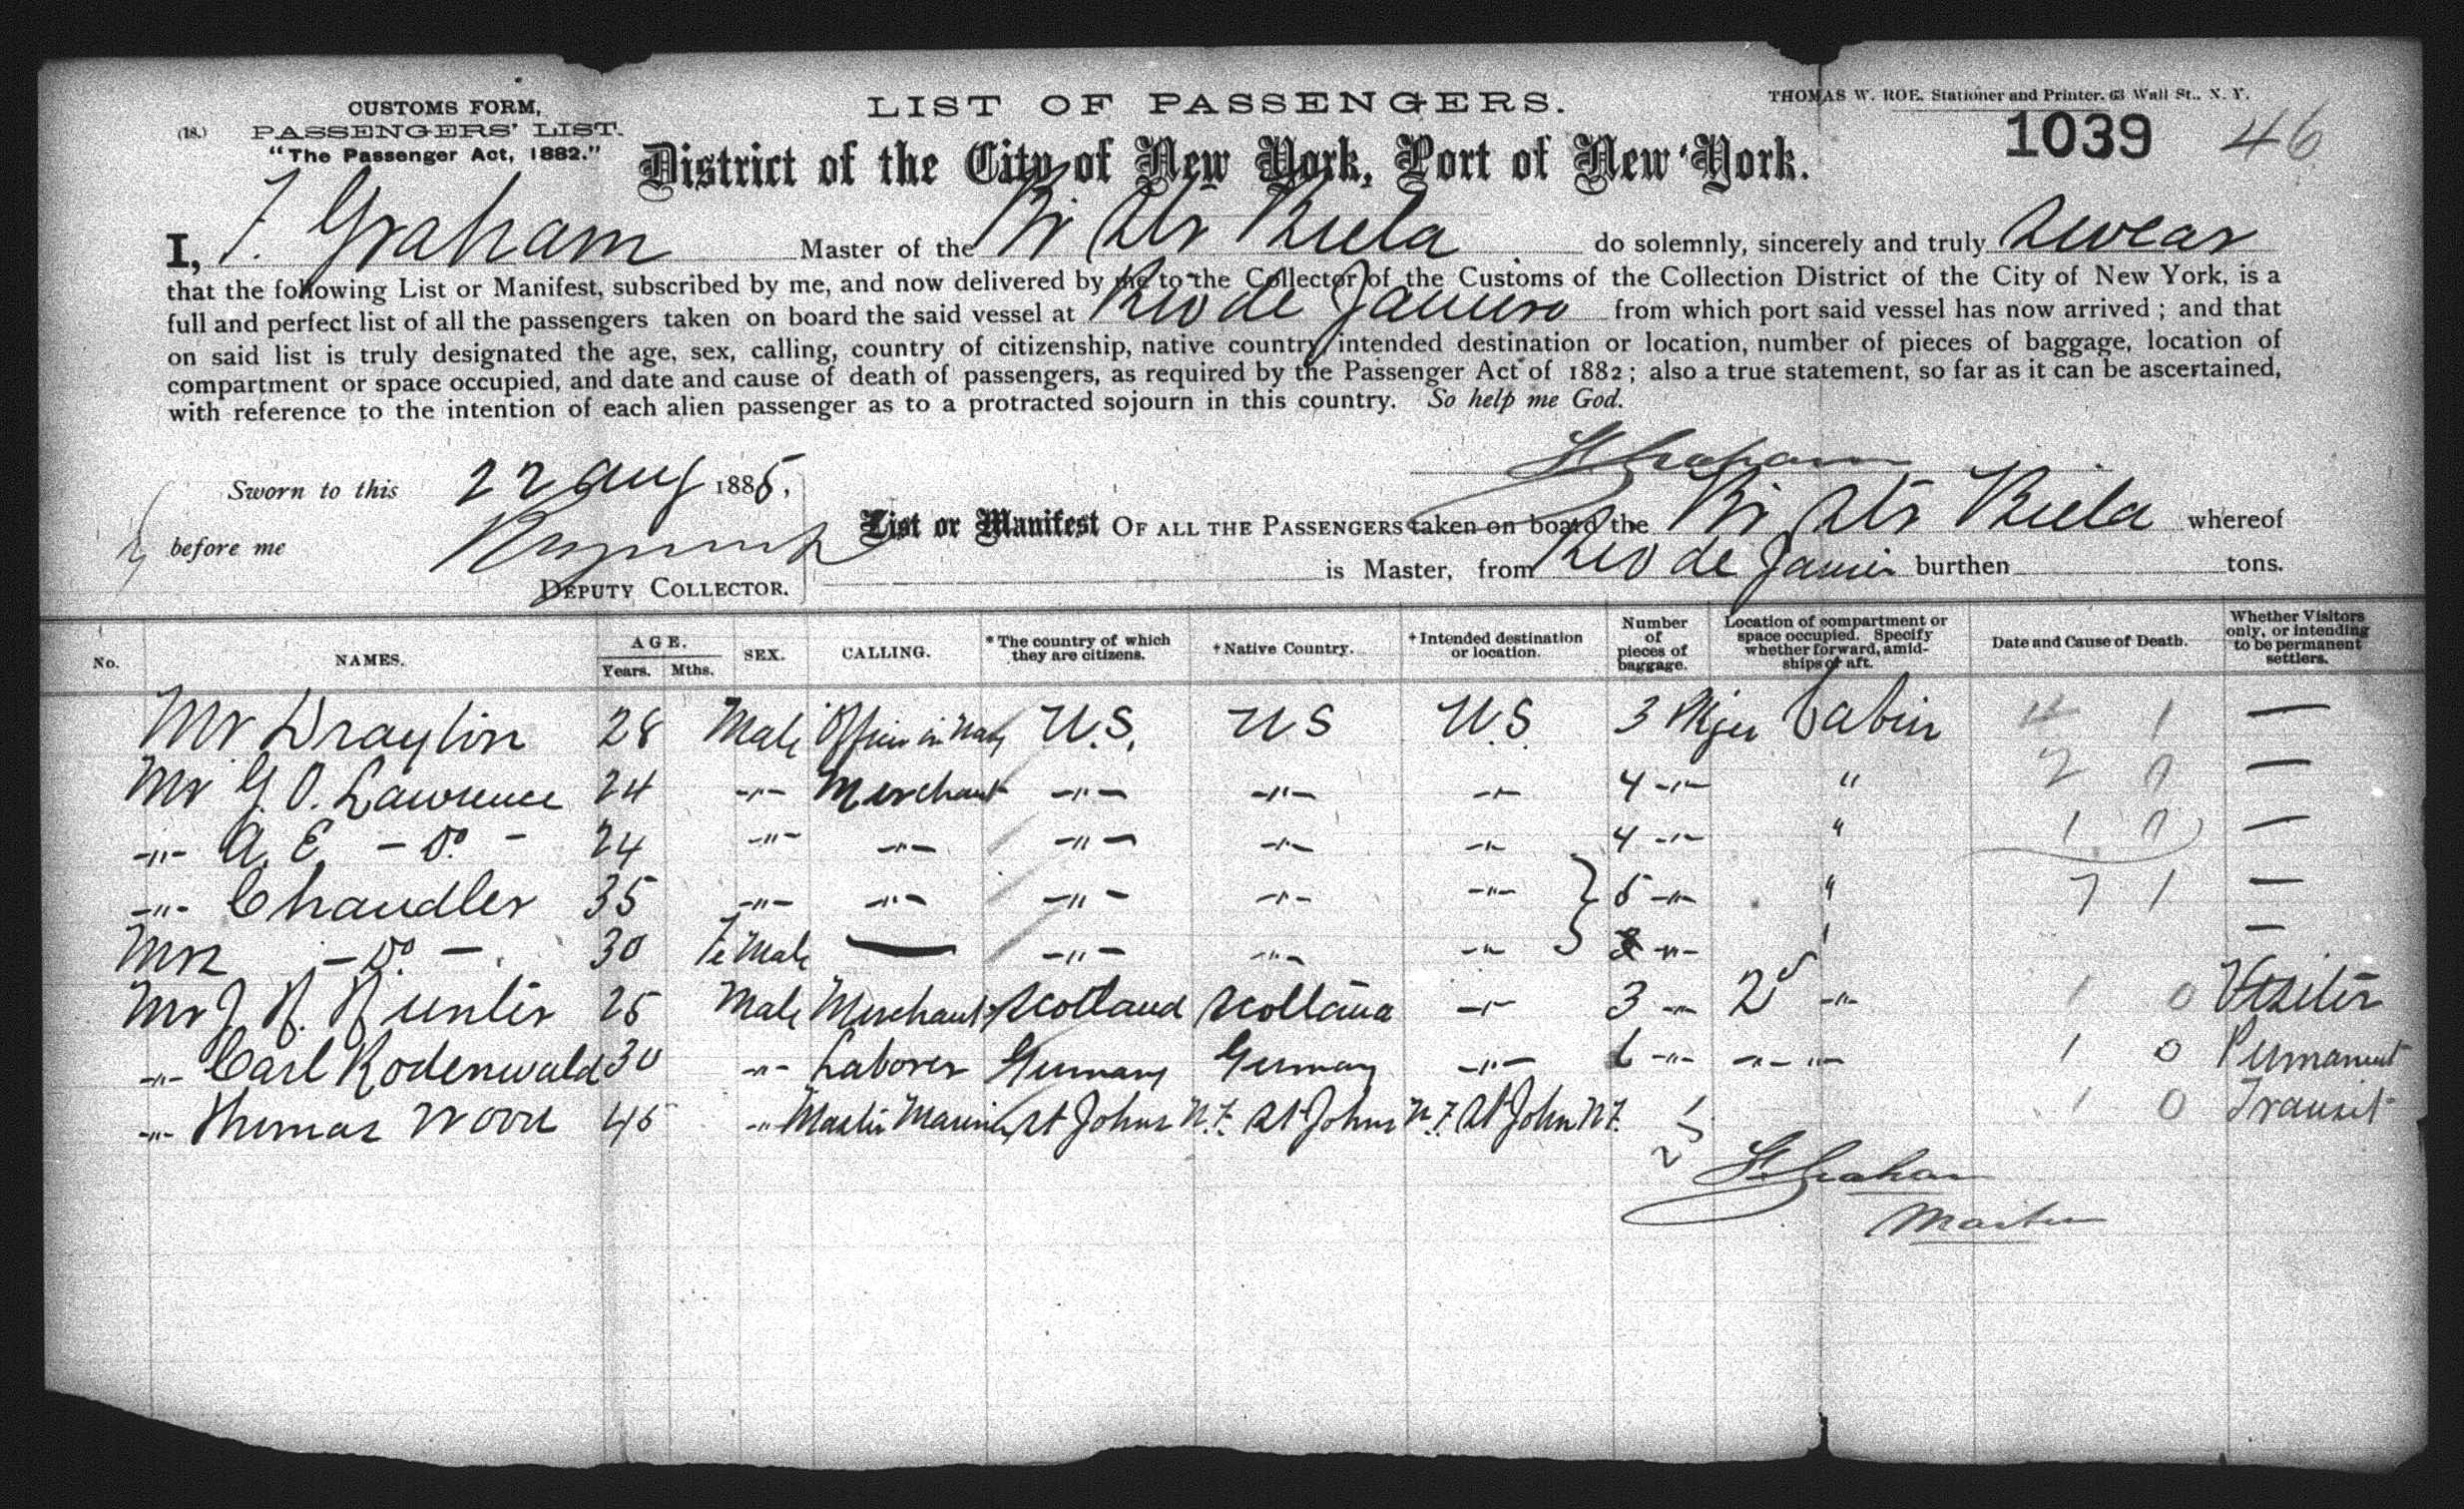 CUSTOMS FORM,
(18.) PASSENGERS' LIST.
"The Passenger Act, 1882."
LIST OF PASSENGERS.
THOMAS W. ROE, Stationer and Printer, 63 Wall St., N. Y.
1039 46
District of the City of New York, Port of New York.
I, F. Graham Master of the Br Str Biela do solemnly, sincerely and truly swear
that the following List or Manifest, subscribed by me, and now delivered by me to the Collector of the Customs of the Collection District of the City of New York, is a
full and perfect list of all the passengers taken on board the said vessel at Rio de Janeiro from which port said vessel has now arrived ; and that
on said list is truly designated the age, sex, calling, country of citizenship, native country, intended destination or location, number of pieces of baggage, location of
compartment or space occupied, and date and cause of death of passengers, as required by the Passenger Act of 1882 ; also a true statement, so far as it can be ascertained,
with reference to the intention of each alien passenger as to a protracted sojourn in this country. So help me God.
F Graham
Sworn to this 22 Aug 1885,
before me
DEPUTY COLLECTOR.
List or Manifest OF ALL THE PASSENGERS taken on board the Br Str Biela whereof
is Master, from Rio de Janeir burthen tons.
No. NAMES. AGE. Years. Mths. SEX. CALLING. *The country of which they are citizens. †Native Country. †Intended destination or location. Number of pieces of baggage. Location of compartment or space occupied. Specify whether forward, amidships or aft. Date and Cause of Death. Whether Visitors only, or intending to be permanent settlers.
Mr Drayton 28 Male Officer in Navy U.S. U S U.S. 3 Cabin 4 1 —
Mr G. O. Lawrence 24 -"- Merchant -"- -"- -"- 4 -"- " 2 0 —
-"- A. E. - Do - 24 -"- -"- -"- -"- -"- 4 -"- " 1 0 —
-"- Chandler 35 -"- -"- -"- -"- -"- 5 -"- " 7 1 —
Mrs - Do - 30 Fe Male — -"- -"- -"- -"- —
Mr J. H. Hunter 25 Male Merchant Scotland Scotland -"- 3 -"- 2d -"- 1 0 Visitor
-"- Carl Rodenwald 30 -"- Laborer Germany Germany -"- -"- -"- -"- 1 0 Permanent
-"- Thomas Wood 45 -"- Master Mariner St Johns N.F. St Johns N.F. St John NF. 1 1 0 Transit
25
F Graham
Master